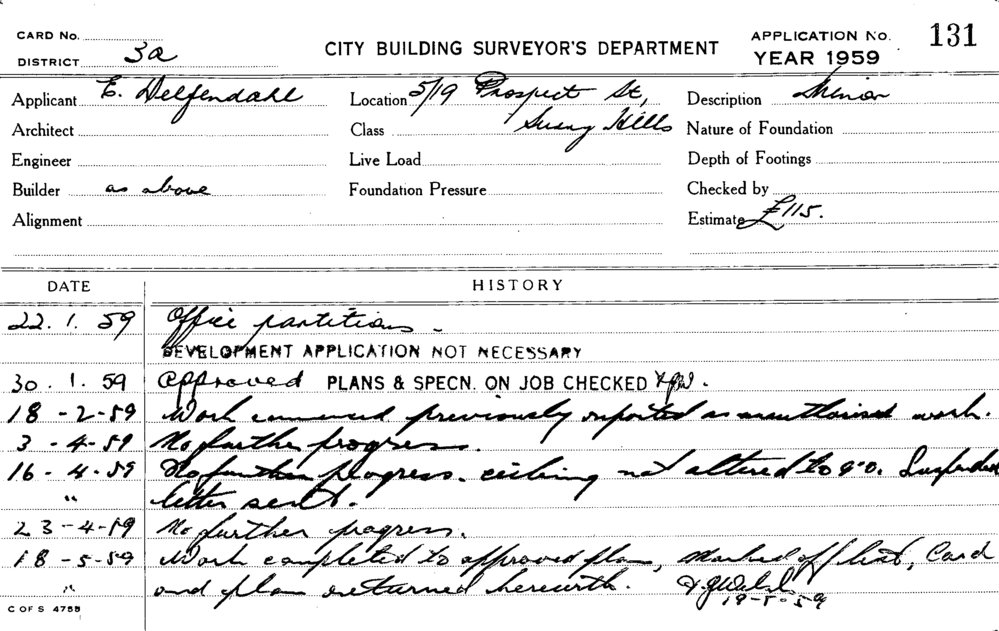 CARD No.
DISTRICT 3a
CITY BUILDING SURVEYOR'S DEPARTMENT
APPLICATION No. 131
YEAR 1959
Applicant E. Delfendahl
Location 5/19 Prospect St,
Description Minor
Architect
Class Surry Hills
Nature of Foundation
Engineer
Live Load
Depth of Footings
Builder as above
Foundation Pressure
Checked by
Alignment
Estimate £115.
DATE HISTORY
22. 1. 59 Office partitions.
DEVELOPMENT APPLICATION NOT NECESSARY
30. 1. 59 Approved PLANS & SPECN. ON JOB CHECKED
18-2-59 Work commenced previously reported as unauthorised work.
3-4-59 No further progress.
16-4-59 No further progress. ceiling not altered to 9'0. Suspended
" letter sent.
23-4-59 No further progress.
18-5-59 Work completed to approved plan, marked off list, Card
" and plan returned herewith.
19-5-59
C OF S 4755